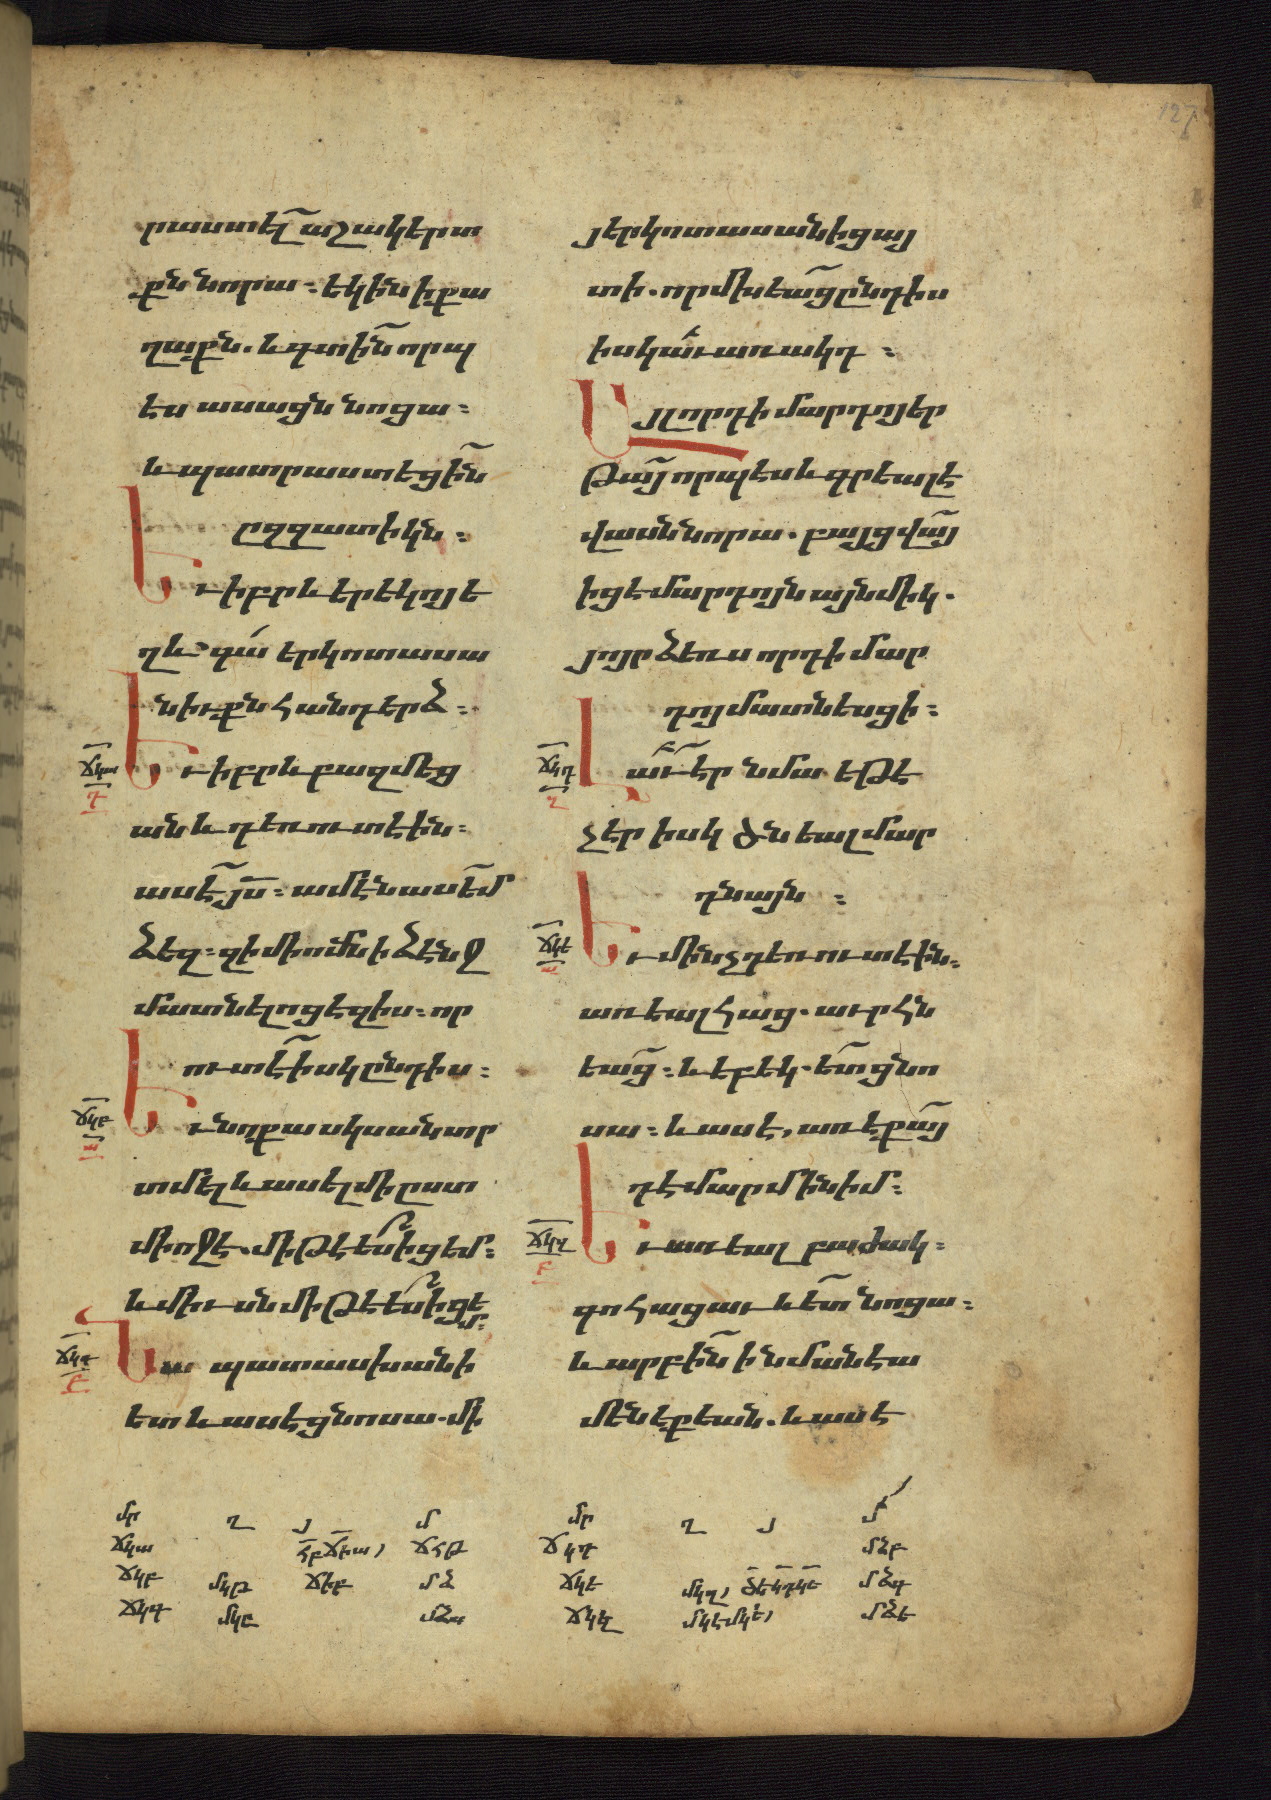 127
րաստել աշակերտ
քն նորա ։ եկին ի քա
ղաքն . և գտին որպ
էս ասացն նոցա ։
և պատրաստեցին
ըզզատիկն ։
Եւ իբրև երեկոյ ե
ղև գա երկոտասա
նիւքն հանդերձ ։
Եւ իբրև բազմեց
ան և դեռ ուտէին ։
ասէ յս ։ ամէն ասեմ
ձեզ ։ զի մի ոմն ի ձէնջ
մատնելոց է զիս ։ որ
ուտէ իսկ ընդ իս ։
Եւ նոքա սկսան տր
տմել և ասել մի ըստ
միոջէ . միթէ ես իցեմ ։
և միւսն միթէ ես իցե
մ ։
Նա պատասխանի
ետ և ասէ ցնոսա . մի
յերկոտասանից այ
տի . որ մխեաց ընդ իս
ի սկաւառակդ ։
Այլ որդի մարդոյ եր
թայ որպէս և գրեալ է
վասն նորա . բայց վայ
իցէ մարդոյն այնմիկ .
յոյր ձեռս որդի մար
դոյ մատնեսցի ։
Լաւ էր նմա եթէ
չէր իսկ ծնեալ մար
դն այն ։
Եւ մինչ դեռ ուտէին ։
առեալ հաց . աւրհն
եաց ։ և եբեկ . ետ ցնո
սա ։ և ասէ , առէք այ
դ է մարմին իմ ։
Եւ առեալ բաժակ ։
գոհացաւ և ետ նոցա ։
և արբին ի նմանէ ա
մէնեքեան . և ասէ
ՃԿԱ
Դ
ՃԿԲ
Ա
ՃԿԳ
Բ
ՃԿԴ
Զ
ՃԿԵ
Ա
ՃԿԶ
Բ
մր ղ յ մ
ՃԿԱ ՀԲ ՃԻԱ, ՃՀԹ
ՃԿԲ ՄԿԹ ՃԻԲ ՄՁ
ՃԿԳ ՄԿԸ ՄՁԱ
մր ղ յ մ
ՃԿԴ ՄՁԲ
ՃԿԵ ՄԿԶ, ԾԵ ԿԴ ԿԵ ՄՁԳ
ՃԿԶ ՄԿԷ ՄԿԵ, ՄՁԵ